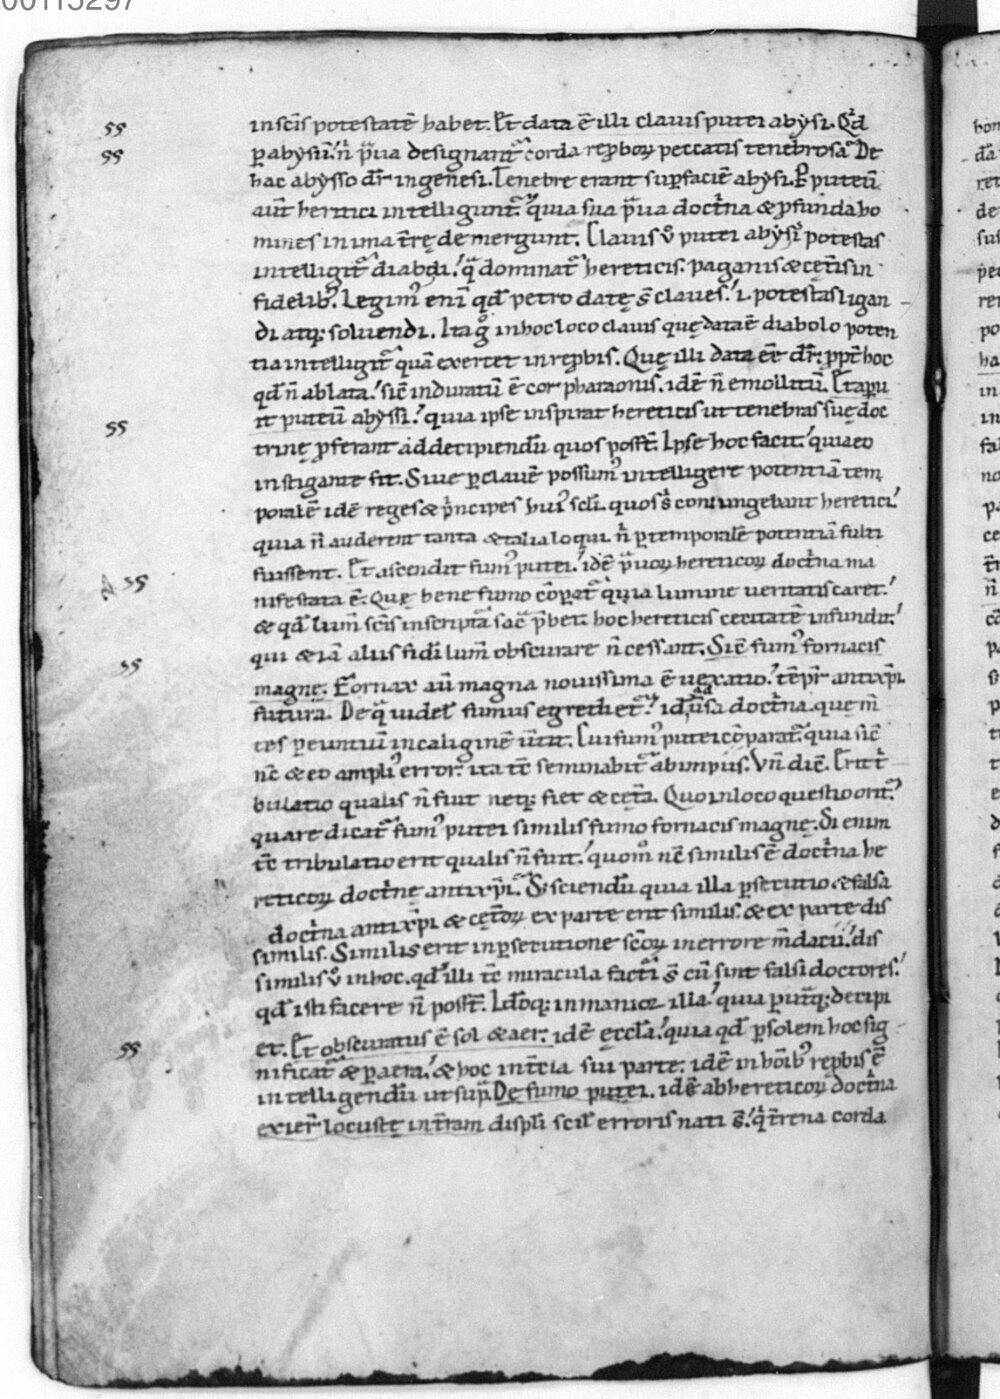 00115297
in scīs potestatē habet. Et data ē illi clauis putei abẏsi. Qd̄
ꝑ abẏsū. n̄ p̄ua designant᷑ corda rep̄boꝝ peccatis tenebrosa. De
hac abẏsso dr̄ in genesi. Tenebre erant sup̄ faciē abẏsi. Ꝑ puteū
aut̄ heritici intelligunt᷑. quia sua p̄ua doct̄na & ꝓfunda ho
mines in ima t̄rę demergunt. Clauis ů putei abẏsi potestas
intelligit᷑ diaboli. q̄ dominat᷑ hereticis. paganis & cęt̄is in
fidelibꝰ. Legimꝰ enī qd̄ petro datę s̄ claues. i. potestas ligan
di atq; soluendi. Itaq̊ in hoc loco clauis quę data ē diabolo poten
tia intelligit᷑ quā exercet in rep̄bis. Quę illi data eē dr̄. ppt̄ hoc
qd̄ n̄ ablata. sic̄ induratū ē cor pharaonis. idē n̄ emollitū. Et aperu
it puteū abẏssi. quia ipse inspirat hereticis ut tenebras suę doc
trinę ꝓferant ad decipiendū quos poss̄t. Ipse hoc facit. quia eo
instigante fit. Siue ꝑ clauē possumꝰ intelligere potentiā tem
poralē idē reges & p̄ncipes huiꝰ scl̄i. quos s̄ coniungebant heretici.
quia n̄ auderent tanta & talia loqui n̄ ꝑ temporalē potentiā fulti
fuissent. Et ascendit fumꝰ putei. idē p̄uoꝝ hereticoꝝ doct̄na ma
nifestata ē. Quę bene fumo cōpat᷑ quia lumine ueritatis caret.
& qd̄ lum̄ scīs in scriptā sac̄ p̄bet. hoc hereticis cecitatē infundit.
qui & iā aliis fidi lum̄ obscurare n̄ cessant. Sic̄ fumꝰ fornacis
magnę. Fornax aū magna nouissima ē uexatio. tēpr̄ antixp̄i
futura. De q̄ uidel̄ fumus egrediet᷑. id ūsa doct̄na. quę m̄
tes ꝑeuntiū in caliginē ūtit. Cui fumꝰ putei cōparat᷑. quia sic̄
nc̄ & eo ampliꝰ error. ita tc̄ seminabit᷑ ab impiis. Vn̄ dic̄. Erit t̄
bulatio qualis n̄ fuit neq; fiet & cęt̄a. Quo in loco questio orit᷑.
quare dicat᷑ fumꝰ putei similis fumo fornacis magnę. Si enim
tc̄ tribulatio erit qualis n̄ fuit. quom̊ nc̄ similis ē doct̄na he
reticoꝝ doct̄nę antixp̄i. S; sciendū quia illa ꝑsecutio & falsa
doct̄na antixp̄i & cęt̄oꝝ ex parte erit similis. & ex parte dis
similis. Similis erit in ꝑsecutione sc̄oꝝ in errore m̄dacii. dis
similis ů in hoc. qd̄ illi tc̄ miracula facti s̄ cū sint falsi doctores.
qd̄ isti facere n̄ poss̄t. Idoq; in manior illa. quia ꝑ utq; decipi
et. Et obscuratus ē sol & aer. idē ęccl̄a. quia qd̄ ꝑ solem hoc sig
nificat᷑ & ꝑ aera. & hoc in t̄cia sui parte. idē in hōibꝰ rep̄bis ē
intelligendū ut sup̄. De fumo putei. idē ab hereticoꝝ doct̄na
exier̄ locustę in t̄ram discipli scil̄ erroris nati s̄. q̄ t̄rena corda